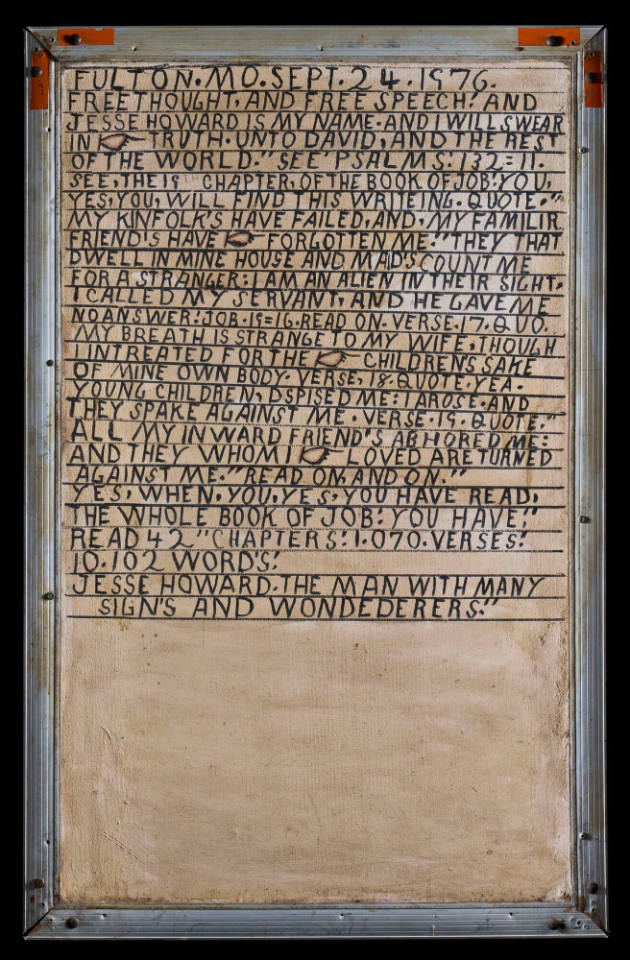 FULTON. MO. SEPT. 24. 1976.
FREETHOUGHT, AND FREE SPEECH! AND
JESSE HOWARD IS MY NAME. AND I WILL SWEAR
IN TRUTH. UNTO DAVID, AND THE REST
OF THE WORLD." SEE PSALMS: 132=11.
SEE, THE 19 CHAPTER, OF THE BOOK OF JOB: YOU,
YES, YOU, WILL FIND THIS WRITEING. QUOTE."
MY KINFOLK'S HAVE FAILED, AND, MY FAMILIR
FRIEND'S HAVE FORGOTTEN ME." THEY THAT
DWELL IN MINE HOUSE AND MAD'S COUNT ME
FOR A STRANGER: I AM AN ALIEN IN THEIR SIGHT.
I CALLED MY SERVANT, AND HE GAVE ME
NO ANSWER! JOB. 19=16. READ ON. VERSE. 17. QUO.
MY BREATH IS STRANGE TO MY WIFE, THOUGH
I INTREATED FOR THE CHILDREN'S SAKE
OF MINE OWN BODY. VERSE, 18. QUOTE. YEA.
YOUNG CHILDREN, DSPISED ME: I AROSE. AND
THEY SPAKE AGAINST ME. VERSE. 19. QUOTE."
ALL MY INWARD FRIEND'S ABHORED ME:
AND THEY WHOM I LOVED ARE TURNED
AGAINST ME." READ ON, AND ON."
YES, WHEN, YOU, YES, YOU HAVE READ,
THE WHOLE BOOK OF JOB: YOU HAVE,"
READ 42" CHAPTERS! 1.070. VERSES!
10.102 WORD'S!
JESSE HOWARD. THE MAN WITH MANY
SIGN'S AND WONDEDERERS."